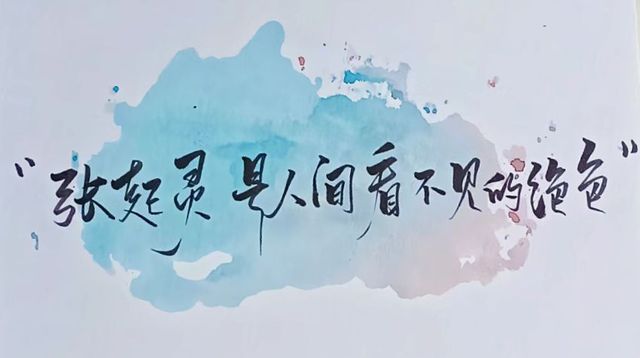 “张起灵是人间看不见的绝色”